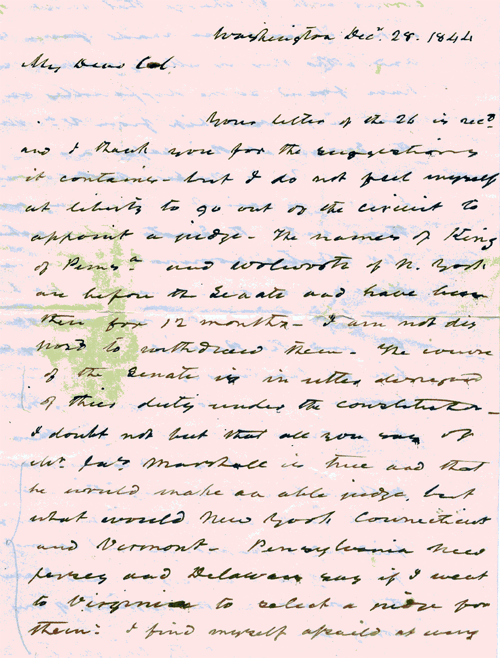 Washington Decr. 28. 1844
My Dear Col.
Your letter of the 26 is recd
and I thank you for the suggestions
it contains - but I do not feel myself
at liberty to go out of the circuit to
appoint a judge - The names of King
of Penna. and Wolworth of N. York
are before the Senate and have been
there for 12 months - I am not dis
posd to withdraw them. The course
of the Senate is in utter disregard
of their duty under the constitution -
I doubt not but that all you say of
Mr. Jas. Marshall is true and that
he would make an able judge, but
what would New York Connecticut
and Vermont - Pennsylvania New
Jersey and Delaware say if I went
to Virginia to select a judge for
them: I find myself assaild at every